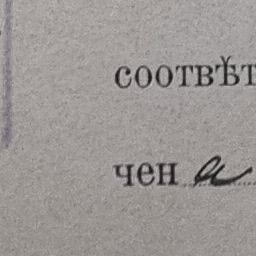 соотвѣт
чен а